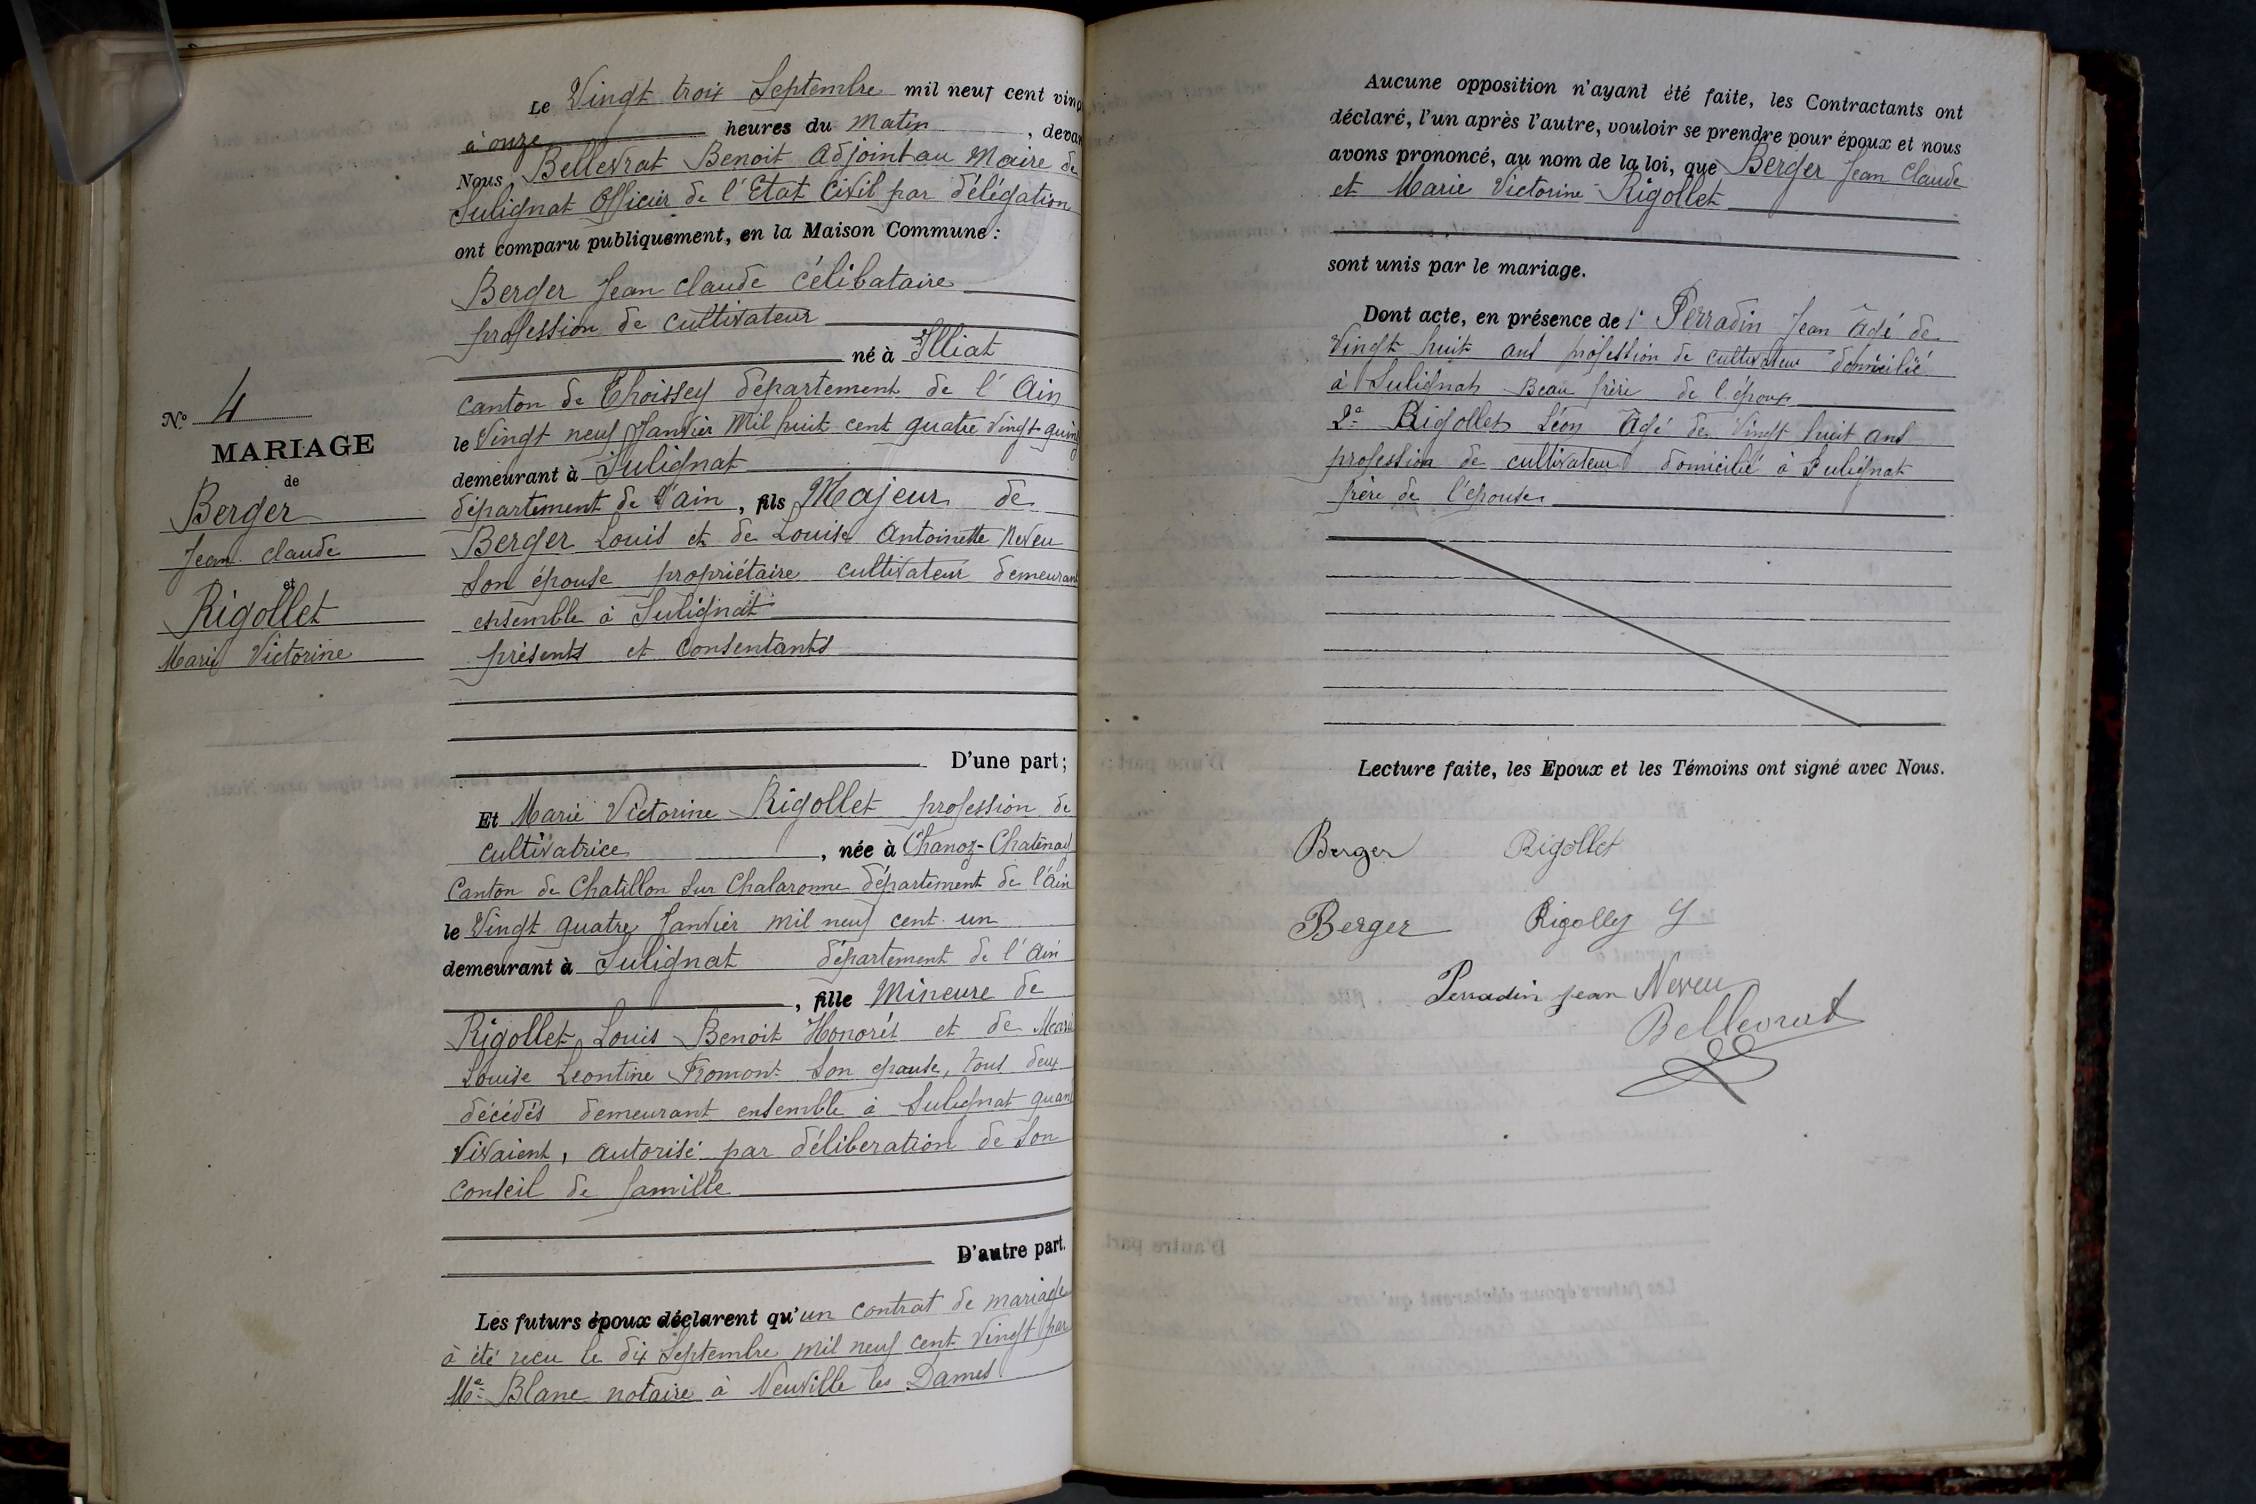 Le Vingt trois Septembre mil neuf cent vingt
à onze heures du matin, devant
Nous Bellevrat Benoit Adjoint au Maire de
Sulignat Officier de l'Etat Civil par délégation
ont comparu publiquement, en la Maison Commune :
Berger Jean Claude célibataire
profession de cultivateur
né à Illiat
canton de Thoissey département de l'Ain
le Vingt neuf Janvier Mil huit cent quatre vingt quinz
demeurant à Sulignat
département de l'ain, fils Majeur de
Berger Louis et de Louise Antoinette Neveu
son épouse propriétaire cultivateur demeurant
ensemble à Sulignat
présents et Consentants
D'une part ;
Nº 4
MARIAGE
de
Berger
Jean Claude
et
Rigollet
Marie Victorine
Et Marie Victorine Rigollet profession de
cultivatrice, née à Chanoz-Chatenay
Canton de Chatillon sur Chalaronne département de l'Ain
le Vingt quatre Janvier mil neuf cent un
demeurant à Sulignat département de l'Ain
, fille Mineure de
Rigollet Louis Benoit Honorés et de Marie
Louise Leontine Fromont son epouse, tous deux
décédés demeurant ensemble à Sulignat quand
vivaient, autorisé par déliberation de son
conseil de famille
D'autre part.
Les futurs époux déclarent qu'un contrat de mariage
à été recu le dix Septembre mil neuf cent vingt par
Me Blanc notaire à Neuville les Dames
Aucune opposition n'ayant été faite, les Contractants ont
déclaré, l'un après l'autre, vouloir se prendre pour époux et nous
avons prononcé, au nom de la loi, que Berger Jean Claude
et Marie Victorine Rigollet
sont unis par le mariage.
Dont acte, en présence de 1º Perradin Jean Âgé de
Vingt huit ans profession de cultivateur domicilié
à Sulignat Beau frère de l'époux
2º Rigollet Léon Agé de Vingt huit ans
profession de cultivateur domicilié à Sulignat
frère de l'épouse
Lecture faite, les Epoux et les Témoins ont signé avec Nous.
Berger Rigollet
Berger Rigolley
Perradin Jean Neveu
Bellevrat